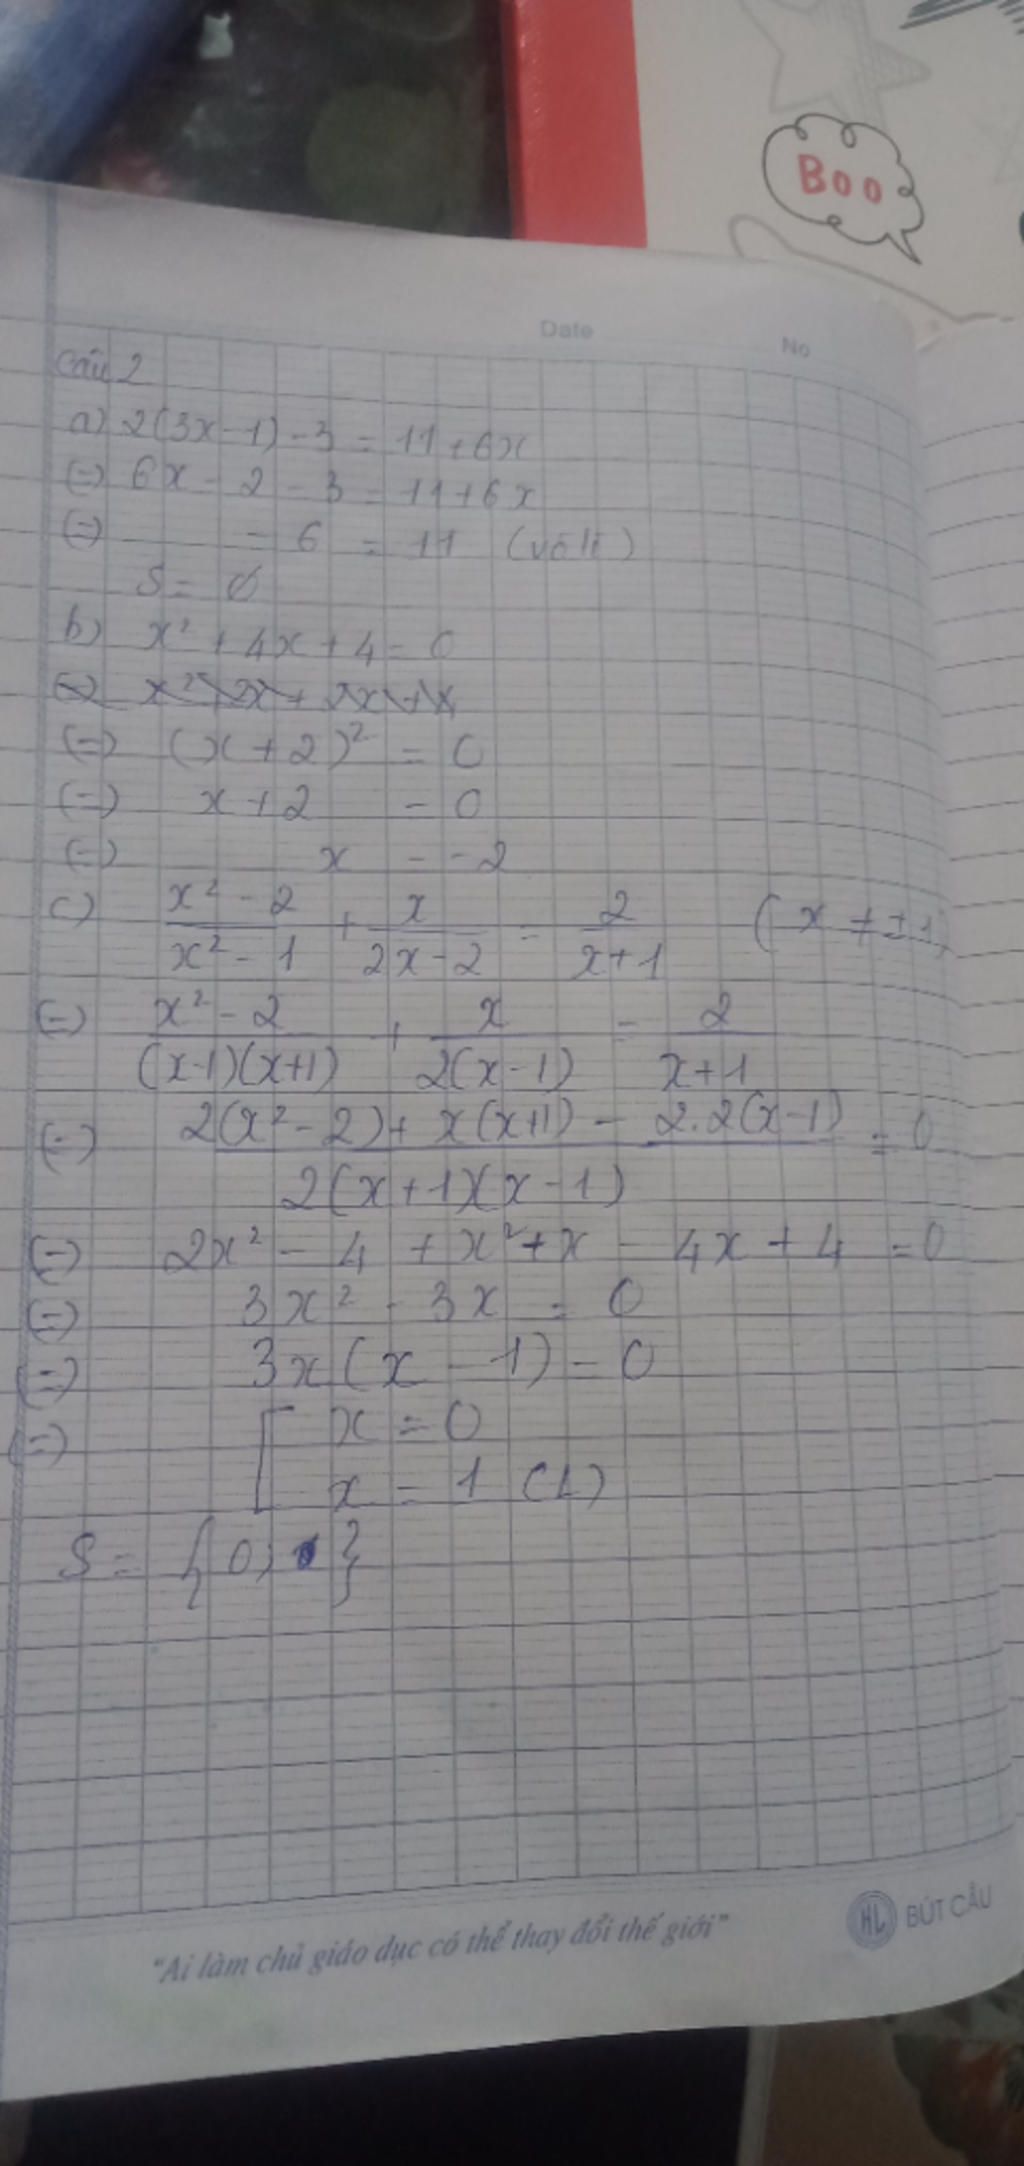 Boo
Date
No
Câu 2
a) 2(3x-1) - 3 = 11 + 6x
(=) 6x - 2 - 3 = 11 + 6x
(=) - 6 = 11 (vô lí)
S = ∅
b) x² + 4x + 4 = 0
(=) (x + 2)² = 0
(=) x + 2 = 0
(=) x = -2
c) (x² - 2)/(x² - 1) + x/(2x - 2) = 2/(x + 1) (x ≠ ±1)
(=) (x² - 2)/((x-1)(x+1)) + x/(2(x-1)) = 2/(x+1)
(=) (2(x² - 2) + x(x+1) - 2.2(x-1))/(2(x+1)(x-1)) = 0
(=) 2x² - 4 + x² + x - 4x + 4 = 0
(=) 3x² - 3x = 0
(=) 3x(x - 1) = 0
(=) [ x = 0
x = 1 (L)
S = {0; }
"Ai làm chủ giáo dục có thể thay đổi thế giới"
HL BÚT CẦU